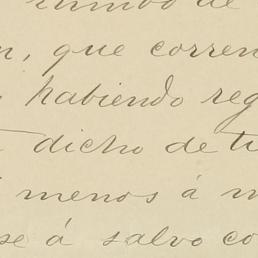 de
que corren
habiendo reg
dicho de tu
menos á m
se á salvo co